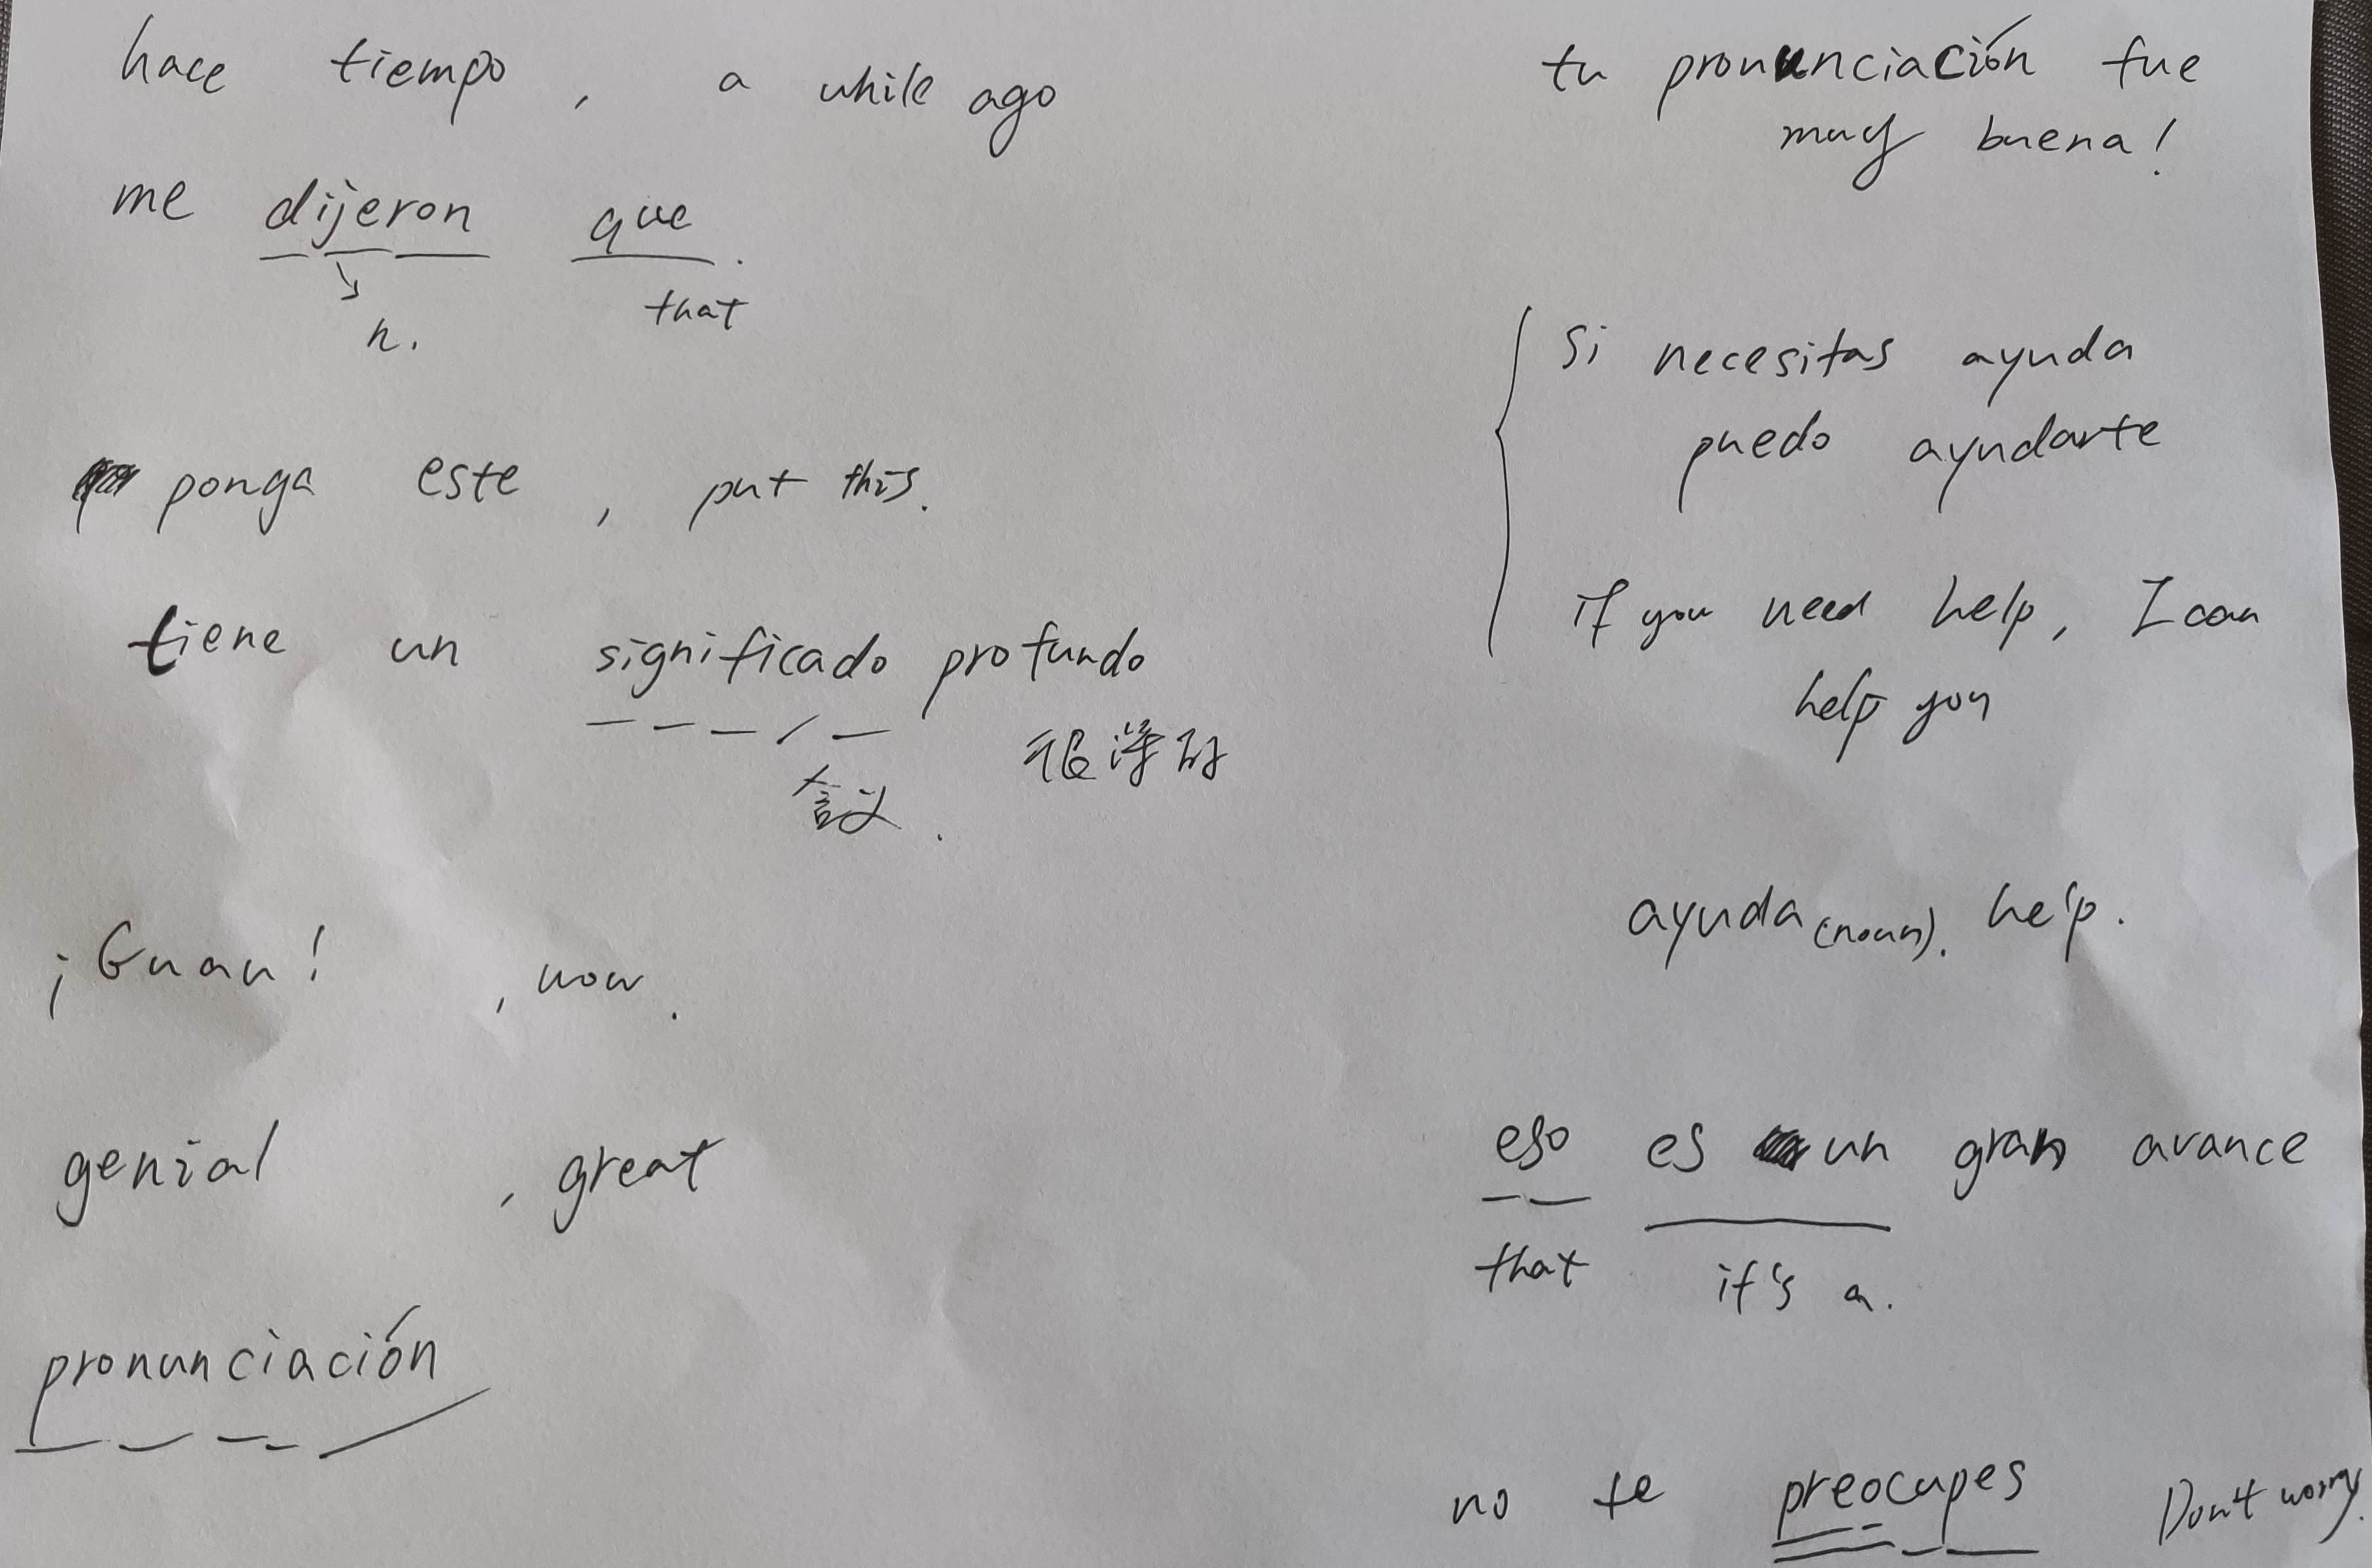 hace tiempo, a while ago
me dijeron que.
that
n.
ponga este, put this.
tiene un significado profundo
很深的
含义.
¡Guau!, wow.
genial, great
pronunciación
tu pronunciación fue
muy buena!
si necesitas ayuda
puedo ayudarte
if you need help, I can
help you
ayuda (noun). help.
eso es un gran avance
that it's a.
no te preocupes Don't worry.